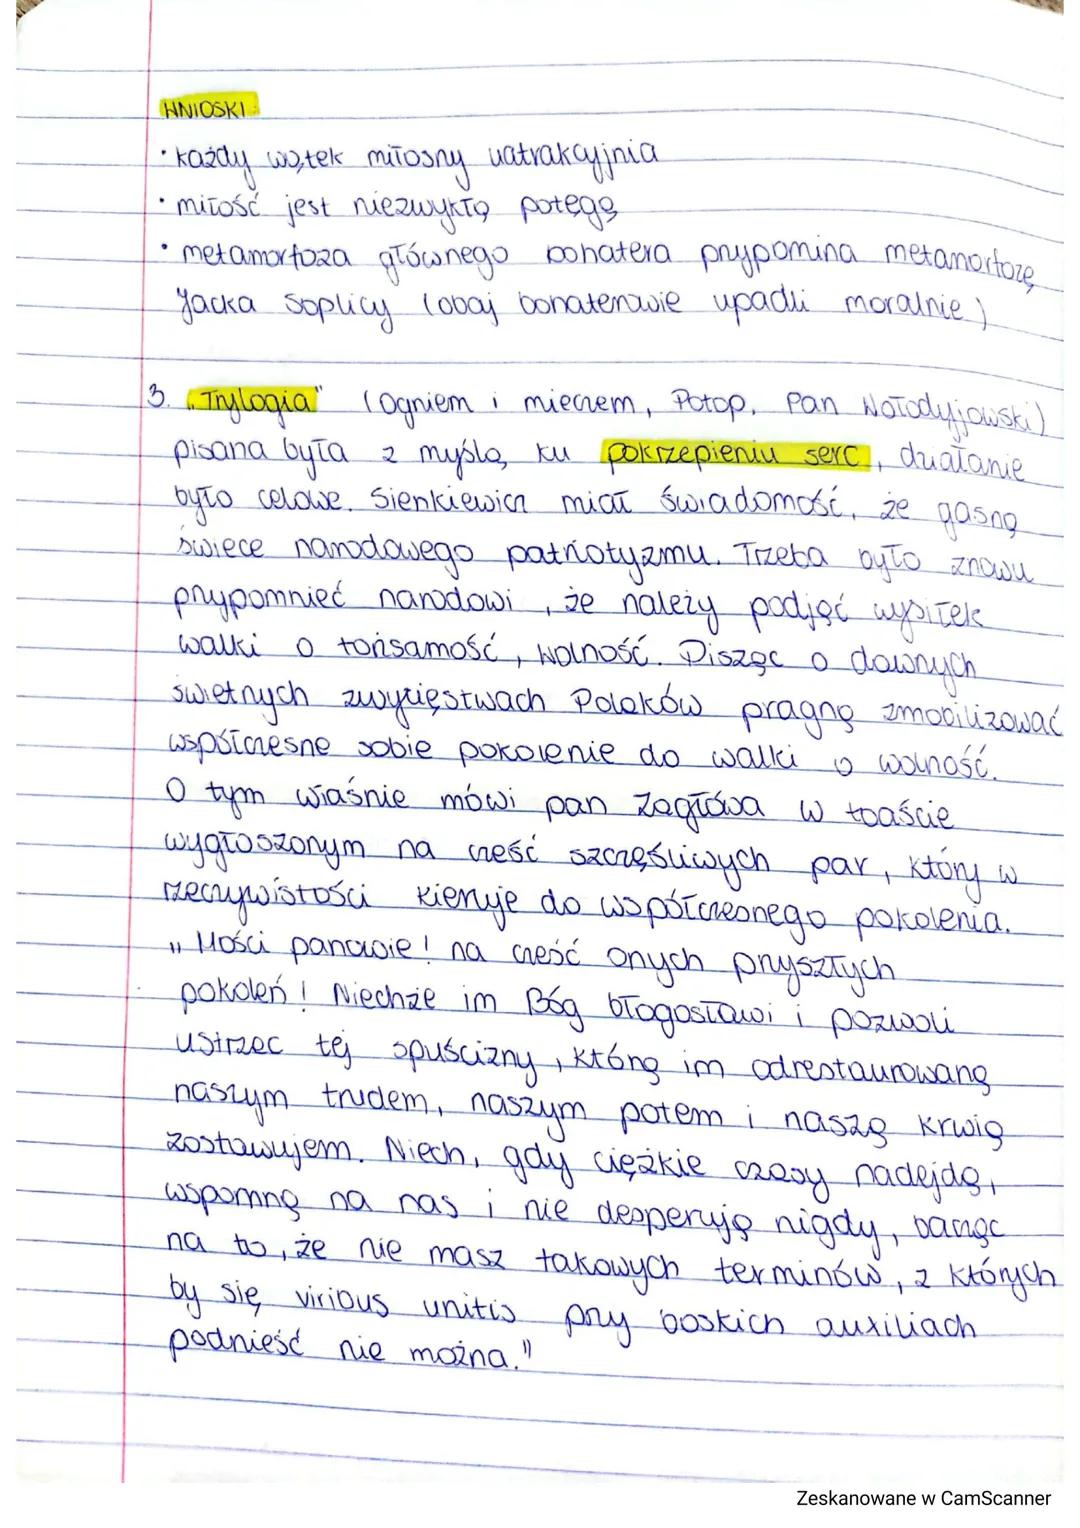 WNIOSKI:
• każdy wątek miłosny uatrakcyjnia
• miłość jest niezwykłą potęgą
• metamorfoza głównego bohatera przypomina metamorfozę
Jacka Soplicy (obaj bohaterowie upadli moralnie)
3. „Trylogia" (Ogniem i mieczem, Potop, Pan Wołodyjowski)
pisana była z myślą ku pokrzepieniu serc, działanie
było celowe. Sienkiewicz miał świadomość, że gasną
świece narodowego patriotyzmu. Trzeba było znowu
przypomnieć narodowi, że należy podjąć wysiłek
walki o tożsamość, wolność. Pisząc o dawnych
świetnych zwycięstwach Polaków pragnę zmobilizować
współczesne sobie pokolenie do walki o wolność.
O tym właśnie mówi pan Zagłoba w toaście
wygłoszonym na cześć szczęśliwych par, który w
rzeczywistości kieruje do współczesnego pokolenia.
„Mości panowie! na cześć onych przyszłych
pokoleń! Niechże im Bóg błogosławi i pozwoli
ustrzec tej spuścizny, którą im odrestaurowaną
naszym trudem, naszym potem i naszą krwią
zostawujem. Niech, gdy ciężkie czasy nadejdą,
wspomną na nas i nie desperują nigdy, bacząc
na to, że nie masz takowych terminów, z których
by się viribus unitis przy boskich auxiliach
podnieść nie można."
Zeskanowane w CamScanner